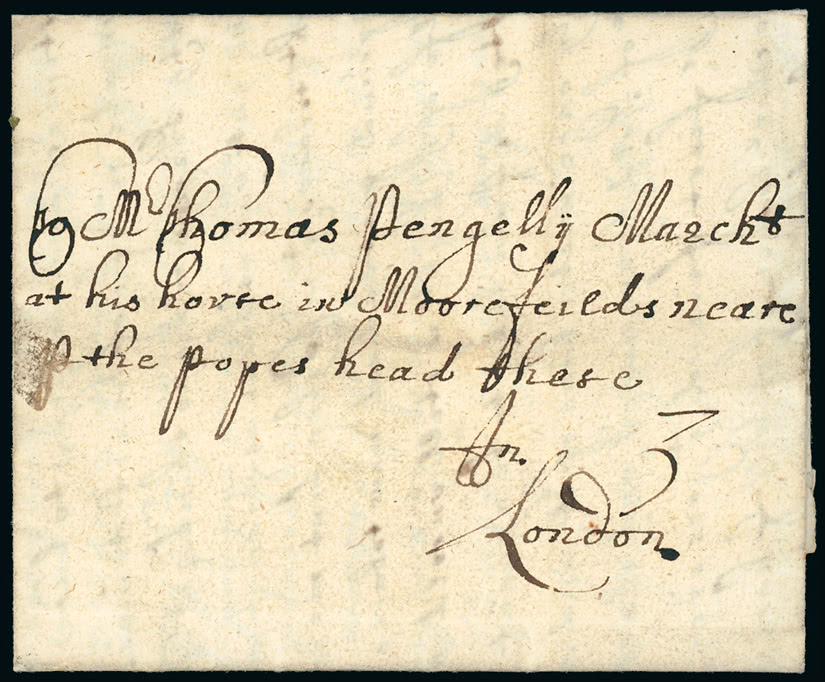 To Mr Thomas Pengelly Marcht
at his howse in Moorefeilds neare
the popes head these
In
London.